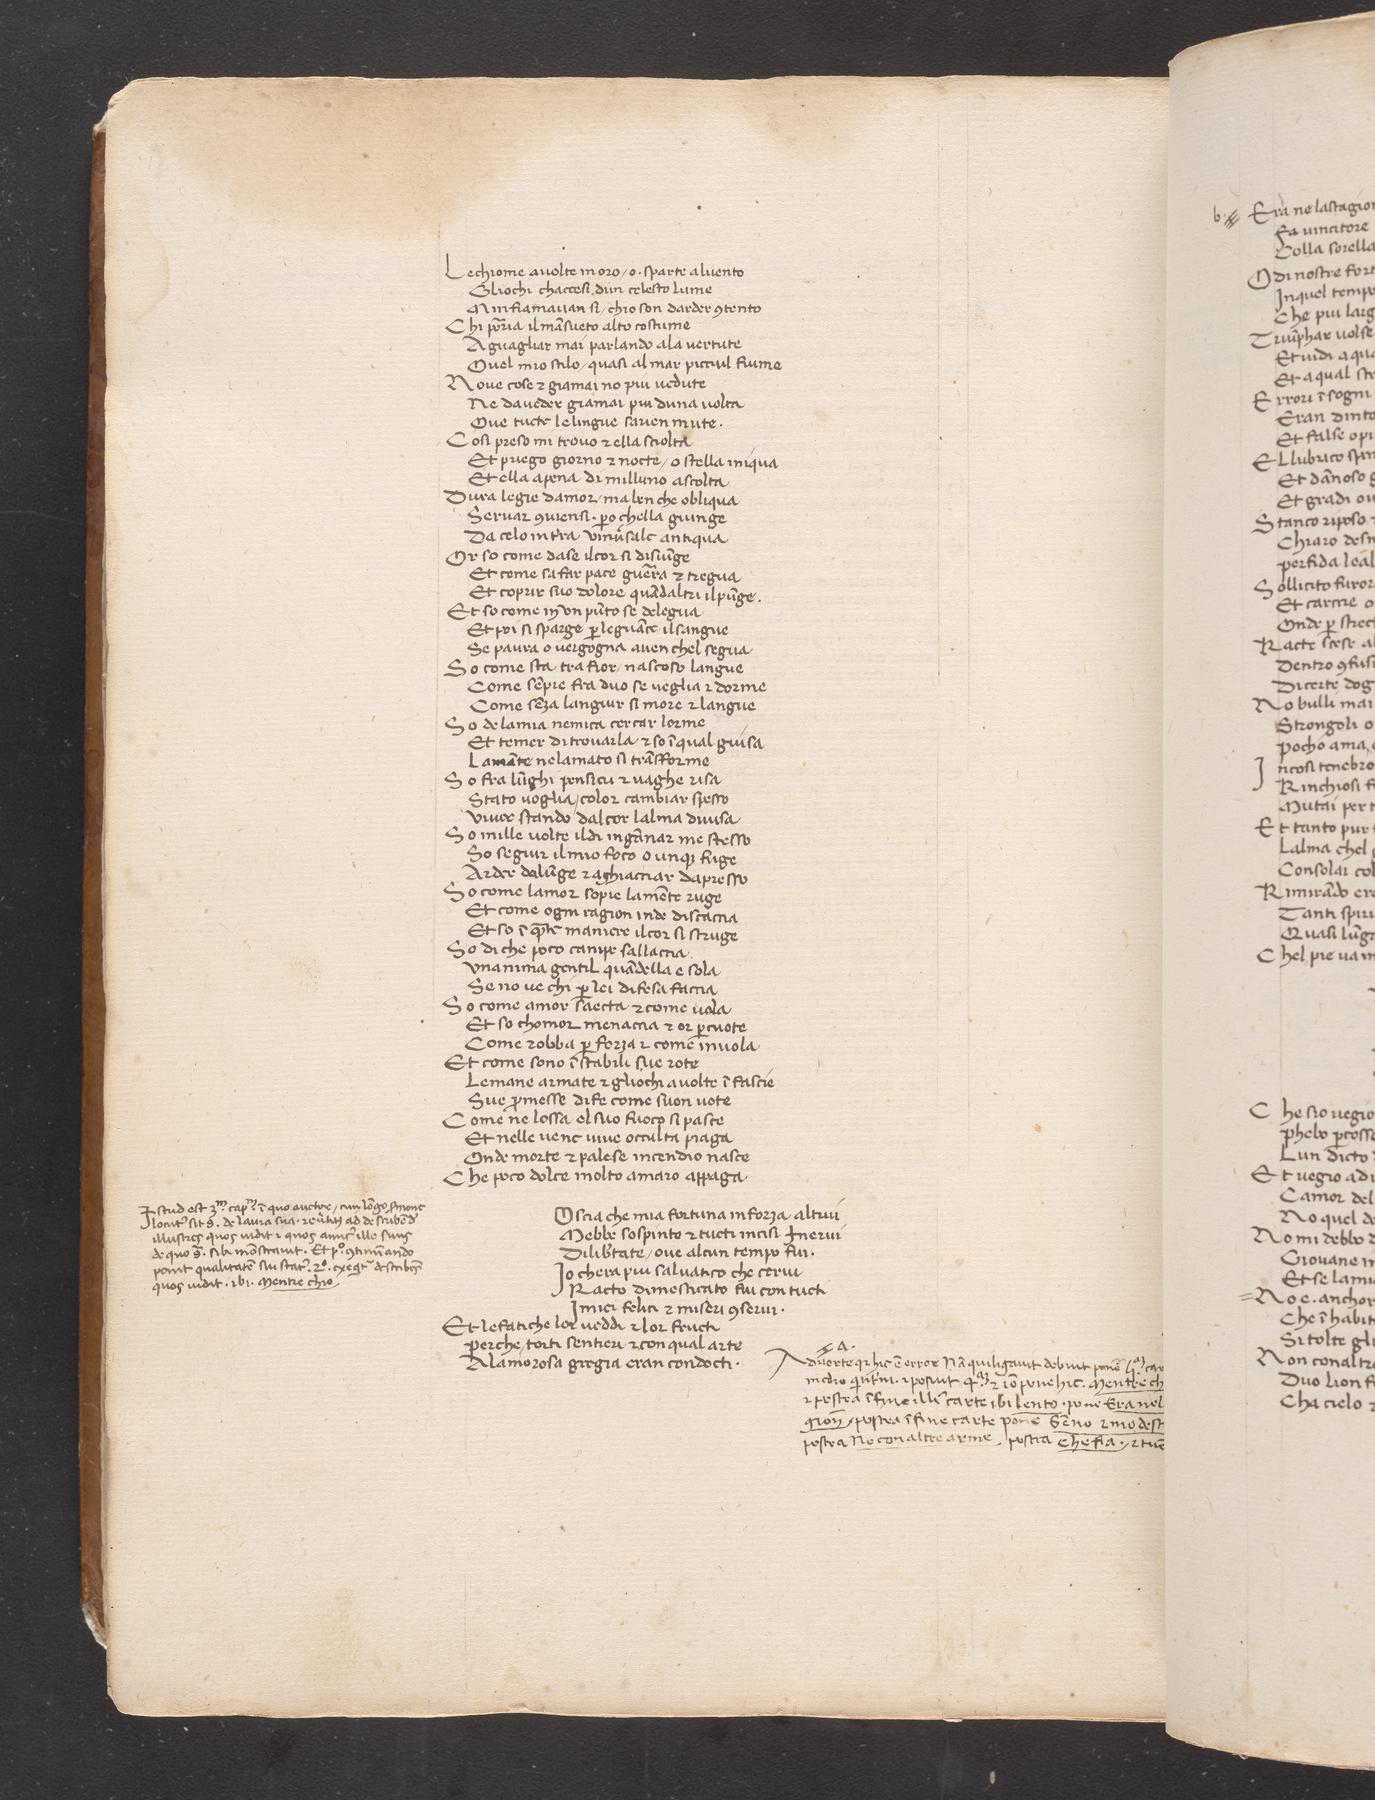 Le chiome avolte in oro / o sparte al vento
Gliochi chaccesi dun celesto lume
Minfiamavan si / chio son darder 9tento
Chi poria il mãsueto alto costume
Aguagliar mai parlando ala vertute
Ouel mio stilo / quasi al mar picciul fiume
Nove cose & giamai no piu vedute
Ne da veder giamai piu duna volta
Ove tucte le lingue sarien mute.
Cosi preso mi trovo & ella sciolta
Et priego giorno & nocte / o stella iniqua
Et ella apena di milluno ascolta
Dura legie damor / ma ben che obliqua
Servar 9viensi . po chella giunge
Da celo in tra univsale antiqua
Or so come dase il cor si disiũge
Et come sa far pace guerra & tregua
Et coprir suo dolore quãdaltri il pũge.
Et so come in un pũto se delegua
Et poi si sparge p le guãce il sangue
Se paura o vergogna aven chel segua
So come sta tra fior / nascoso langue
Come sẽpre fra duo se veglia & dorme
Come sẽza languir si more & langue
So de la mia nemica cercar lorme
Et temer di trovarla & so ĩ qual guisa
Lamãte nelamato si trãsforme
So fra lũghi pensieri & vaghe risa
Stato voglia / color cambiar spesso
Viver stando dal cor lalma divisa
So mille volte il di ingãnar me stesso
So seguir il mio foco ounq; fuge
Arder dalũge & aghiacciar dapresso
So come lamor sopre la mẽte ruge
Et come ogni ragion inde discaccia
Et so ĩ q̃te maniere il cor si struge
So di che poco canipe sallaccia
Unanima gentil quãdella e sola
Se no ve chi p lei difesa faccia
So come amor saecta & come vola
Et so chomor menaccia & or pcuote
Come robba p forza & come invola
Et come sono ĩstabili sue rote
Le mane armate & gliochi avolte ĩ fascie
Sue pmesse di fe come suon vote
Come ne lossa el suo fuoco si pasce
Et nelle vene vive occulta piaga
Onde morte & palese incendio nasce
Che poco dolce molto amaro appaga
Istud est 3m capm ĩ quo auctor / cum lõgo smone
locut9 sit s. de laura sua
illustres quos vidit & quos amic9 ille suus
de quo s. sibi mõstravit . Et p° 9tinuando
ponit qualitatẽ sui stat9 . 2°. exeqtur describẽs
quos vidit . ibi . Mentre chio
Oscia che mia fortuna in forza altrui
Mebbe sospinto & tucti incisi Inervi
Di libtate / ove alcun tempo fui .
Io chera piu salvatico che cervi
Racto dimesticato fui con tucti
I miei felici & miseri 9servi .
Et le fatiche lor veddi & lor fructi
Perche torti sentieri & con qual arte
Alamorosa gregia eran condocti .
.A.
Adverte q hic ẽ error Nã qui ligavit debuit ponẽ
medio & posuit & iõ pone hic . Mentre ch
& postea ĩ fine illi9 carte ibi lento . pone Era nel
gion / postea ĩ fine carte pone
postea No con altre arme . postea che fia . & tuẽ
b.
Era ne la stagion
Fa vincitore
Colla sorella
O di nostre fort
In quel tempo
Che piu larg
Triũphar volse
Et vidi a qua
Et a qual str
Errori ĩ sogni
Eran dinto
Et false opi
E Llubrico span
Et dãnoso g
Et gradi ov
Stanco riposo &
Chiaro desn
Perfida leal
Sollicito furor
Et carcere o
Onde p strect
Racte scese al
Dentro 9fusi
Di certe dog
No bulli mai
Strongoli o
Pocho ama
In cosi tenebro
Rinchiosi f
Mutai per t
Et tanto pur
Lalma chel
Consolai col
Rimirãdo er
Tanti spiri
Quasi lũga
Chel pie va in
Che sio vegio
Phebo pcosse
Lun dicto
Et vegio ad i
Camor del
No quel de
No mi debbo d
Giovane in
Et se la mia
No e . anchor
Che ĩ habit
Si tolte gli
Non con altro
Duo lion f
Cha cielo &